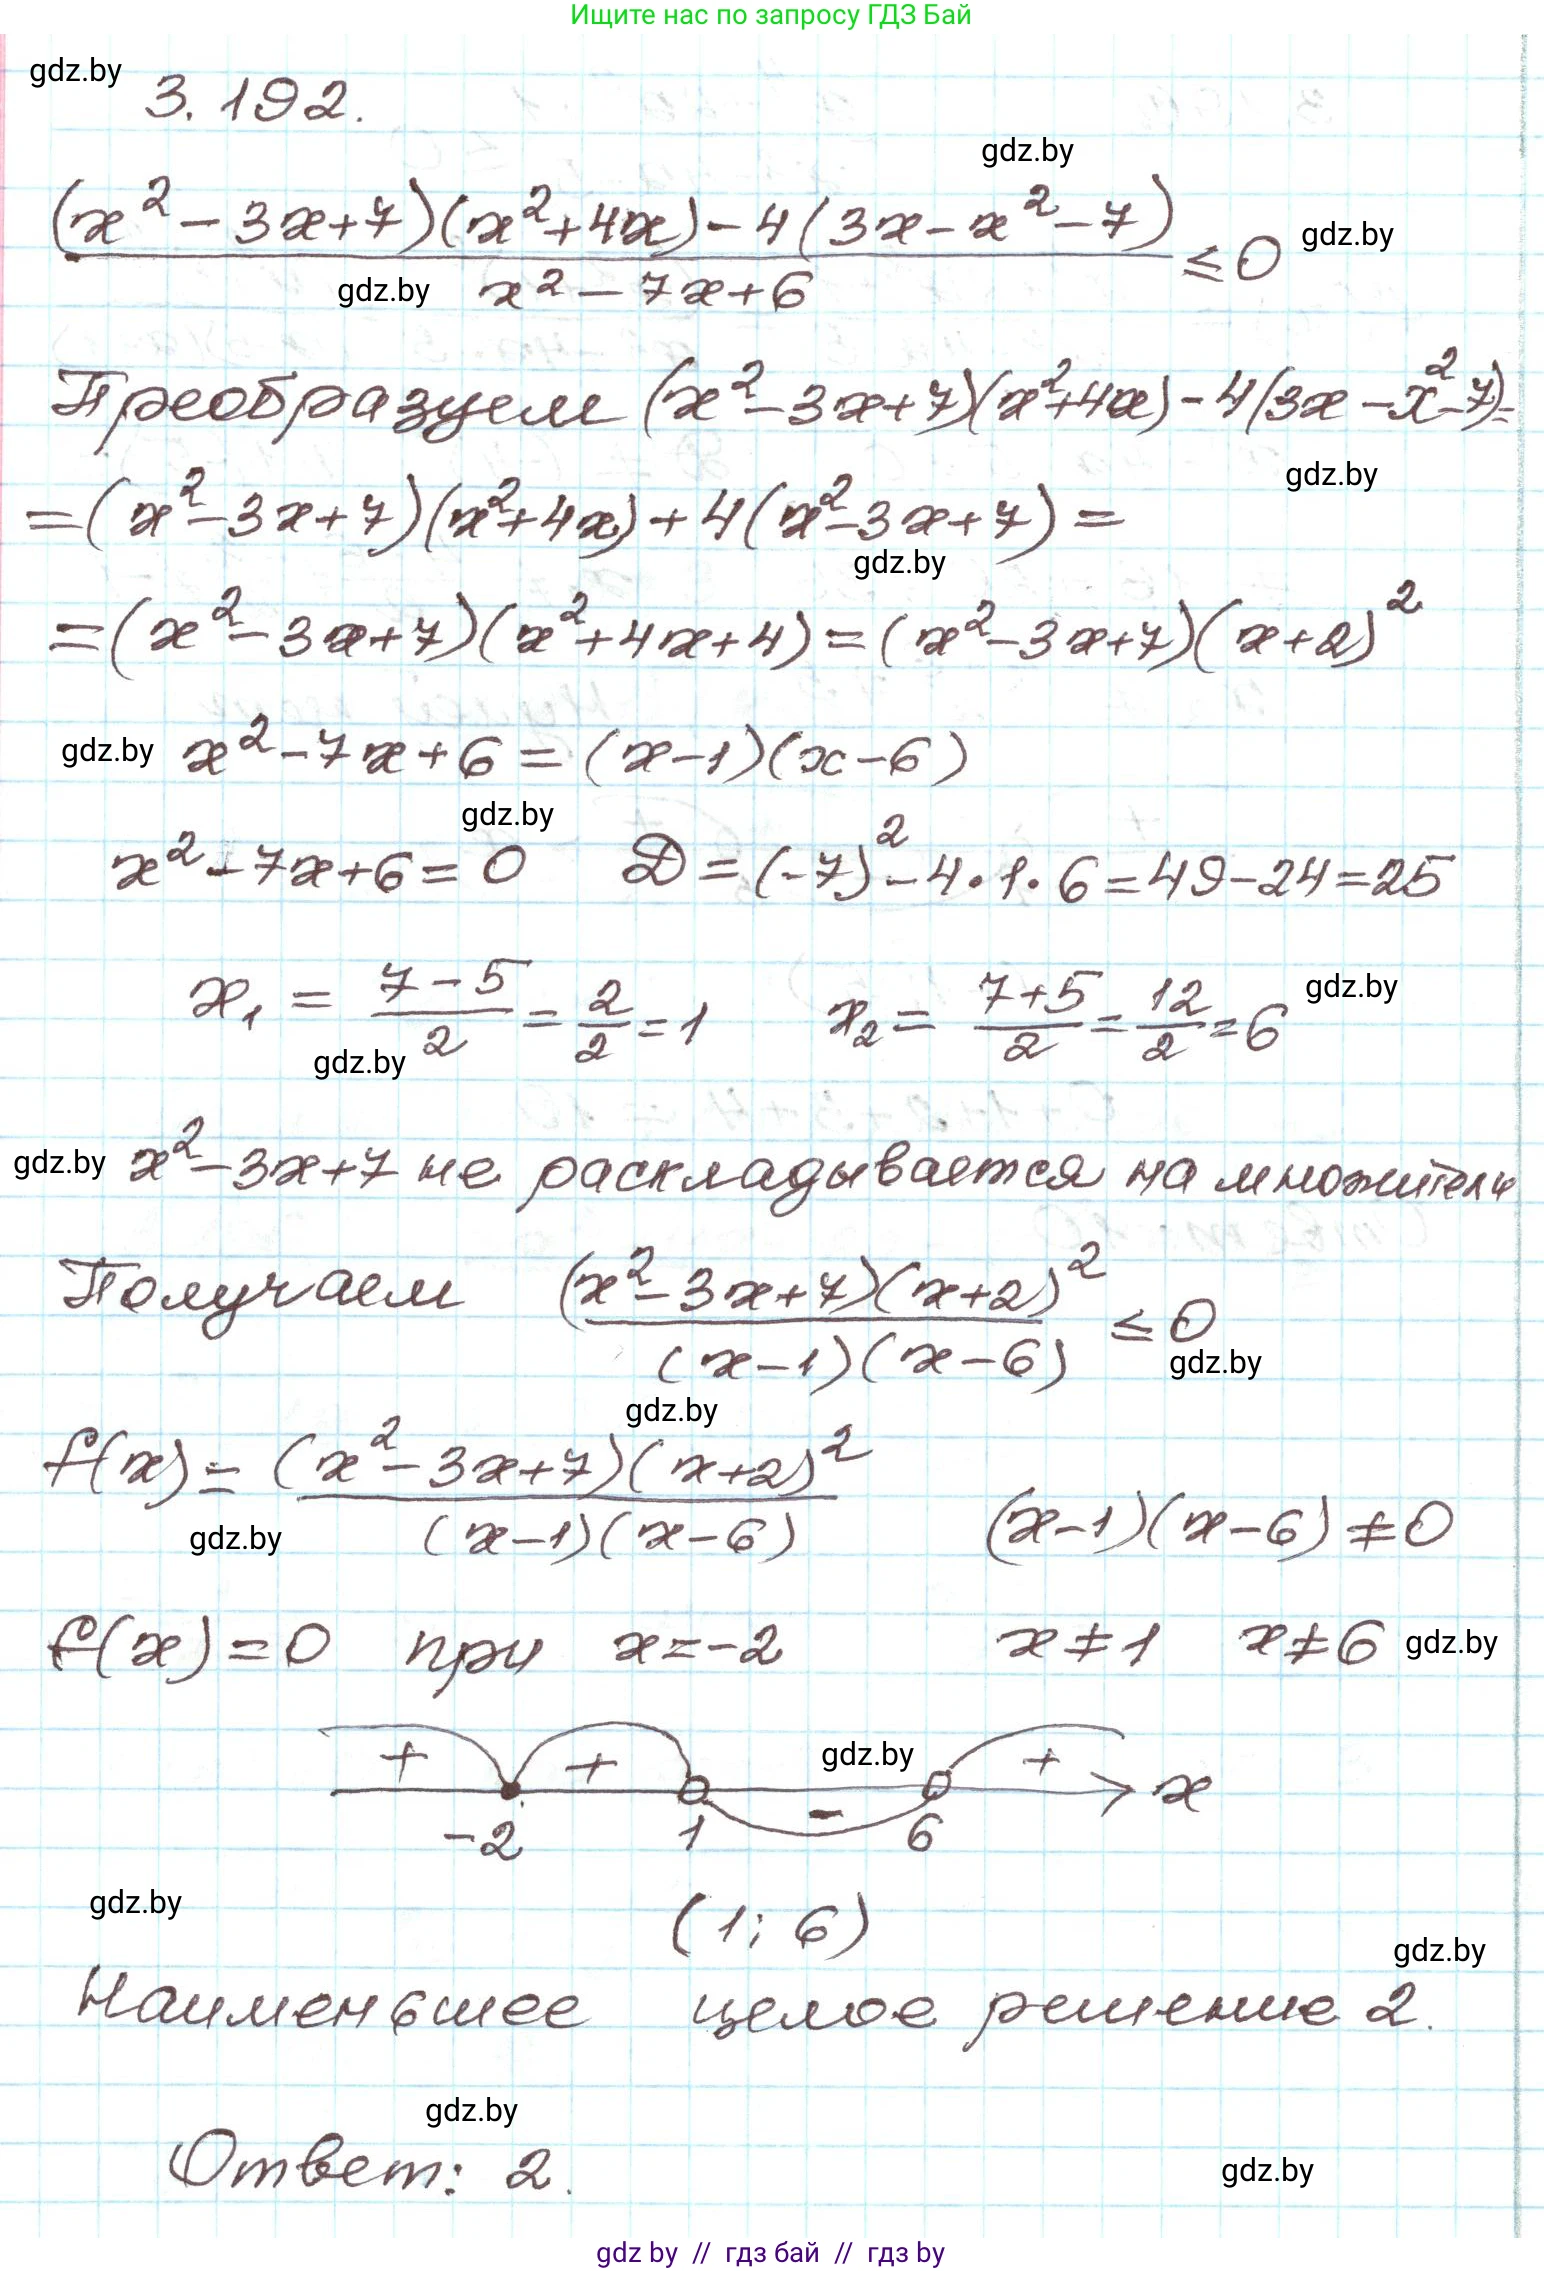 Ищите нас по запросу ГДЗ Бай
gdz.by
3.192.
gdz.by
(x² - 3x + 7)(x² + 4x) - 4(3x - x² - 7)
gdz.by
≤ 0
gdz.by
x² - 7x + 6
Преобразуем (x² - 3x + 7)(x² + 4x) - 4(3x - x² - 7) =
gdz.by
= (x² - 3x + 7)(x² + 4x) + 4(x² - 3x + 7) =
gdz.by
= (x² - 3x + 7)(x² + 4x + 4) = (x² - 3x + 7)(x + 2)²
gdz.by
x² - 7x + 6 = (x - 1)(x - 6)
gdz.by
x² - 7x + 6 = 0 D = (-7)² - 4·1·6 = 49 - 24 = 25
x₁ = (7 - 5)/2 = 2/2 = 1 x₂ = (7 + 5)/2 = 12/2 = 6
gdz.by
gdz.by
gdz.by
x² - 3x + 7 не раскладывается на множители
Получаем (x² - 3x + 7)(x + 2)² / (x - 1)(x - 6) ≤ 0
gdz.by
gdz.by
f(x) = (x² - 3x + 7)(x + 2)² / (x - 1)(x - 6)
gdz.by
(x - 1)(x - 6) ≠ 0
f(x) = 0 при x = -2 x ≠ 1 x ≠ 6
gdz.by
+ + gdz.by +
- x
-2 1 6
gdz.by
(1; 6)
gdz.by
Наименьшее целое решение 2.
gdz.by
Ответ: 2.
gdz.by
gdz by // гдз бай // гдз by